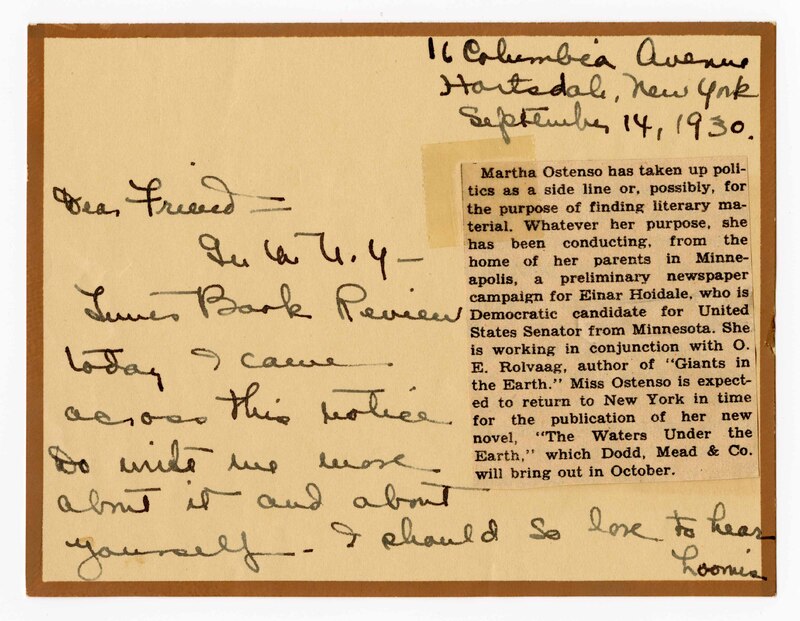 16 Columbia Avenue
Hartsdale, New York
September 14, 1930.
Dear Friend —
In the N.Y —
Times Book Review
today I came
across this notice
Do write me more
about it and about
yourself — I should so love to hear
Loomis
Martha Ostenso has taken up poli-
tics as a side line or, possibly, for
the purpose of finding literary ma-
terial. Whatever her purpose, she
has been conducting, from the
home of her parents in Minne-
apolis, a preliminary newspaper
campaign for Einar Hoidale, who is
Democratic candidate for United
States Senator from Minnesota. She
is working in conjunction with O.
E. Rolvaag, author of "Giants in
the Earth." Miss Ostenso is expect-
ed to return to New York in time
for the publication of her new
novel, "The Waters Under the
Earth," which Dodd, Mead & Co.
will bring out in October.